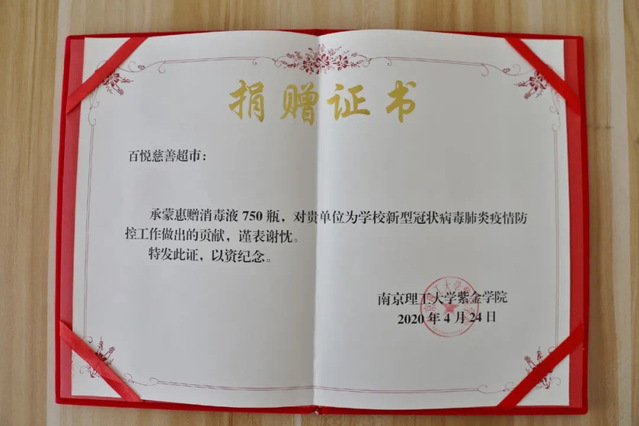 捐赠证书
百悦慈善超市：
承蒙惠赠消毒液 750 瓶，对贵单位为学校新型冠状病毒肺炎疫情防
控工作做出的贡献，谨表谢忱。
特发此证，以资纪念。
南京理工大学紫金学院
2020 年 4 月 24 日